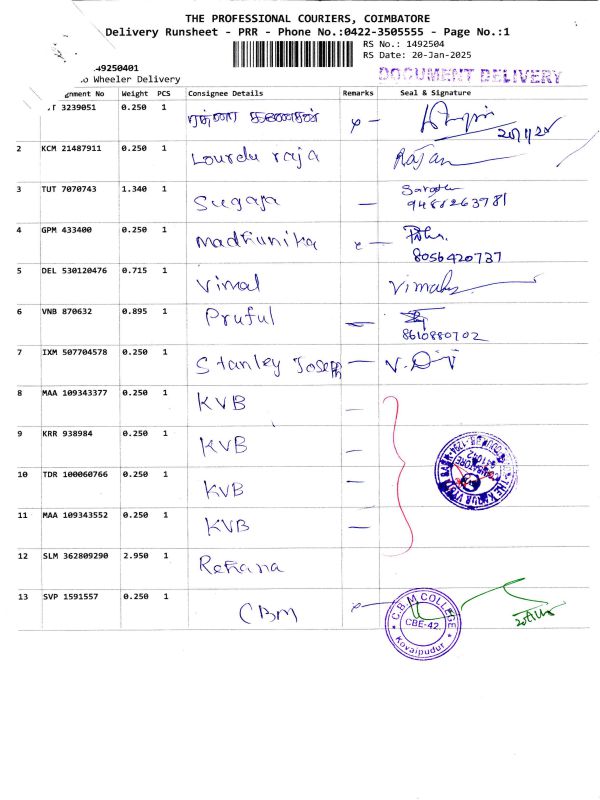 THE PROFESSIONAL COURIERS, COIMBATORE
Delivery Runsheet - PRR - Phone No.:0422-3505555 - Page No.:1
RS No.: 1492504
RS Date: 20-Jan-2025
49250401
Wheeler Delivery
DOCUMENT DELIVERY
nment No Weight PCS Consignee Details Remarks Seal & Signature
3239051 0.250 1 ரத்னா கணேசன்
2 KCM 21487911 0.250 1 Lourdu raja Rajan
3 TUT 7070743 1.340 1 Sugaja
9488263781
4 GPM 433400 0.250 1 Madhunika
8056420737
5 DEL 530120476 0.715 1 Vimal Vimal
6 VNB 870632 0.895 1 Pruful
8610880702
7 IXM 507704578 0.250 1 Stanley Joseph
8 MAA 109343377 0.250 1 KVB
9 KRR 938984 0.250 1 KVB
10 TDR 100060766 0.250 1 KVB
11 MAA 109343552 0.250 1 KVB
12 SLM 362809290 2.950 1 Rehana
13 SVP 1591557 0.250 1 CBM
C.B.M COLLEGE
CBE-42.
Kovaipudur